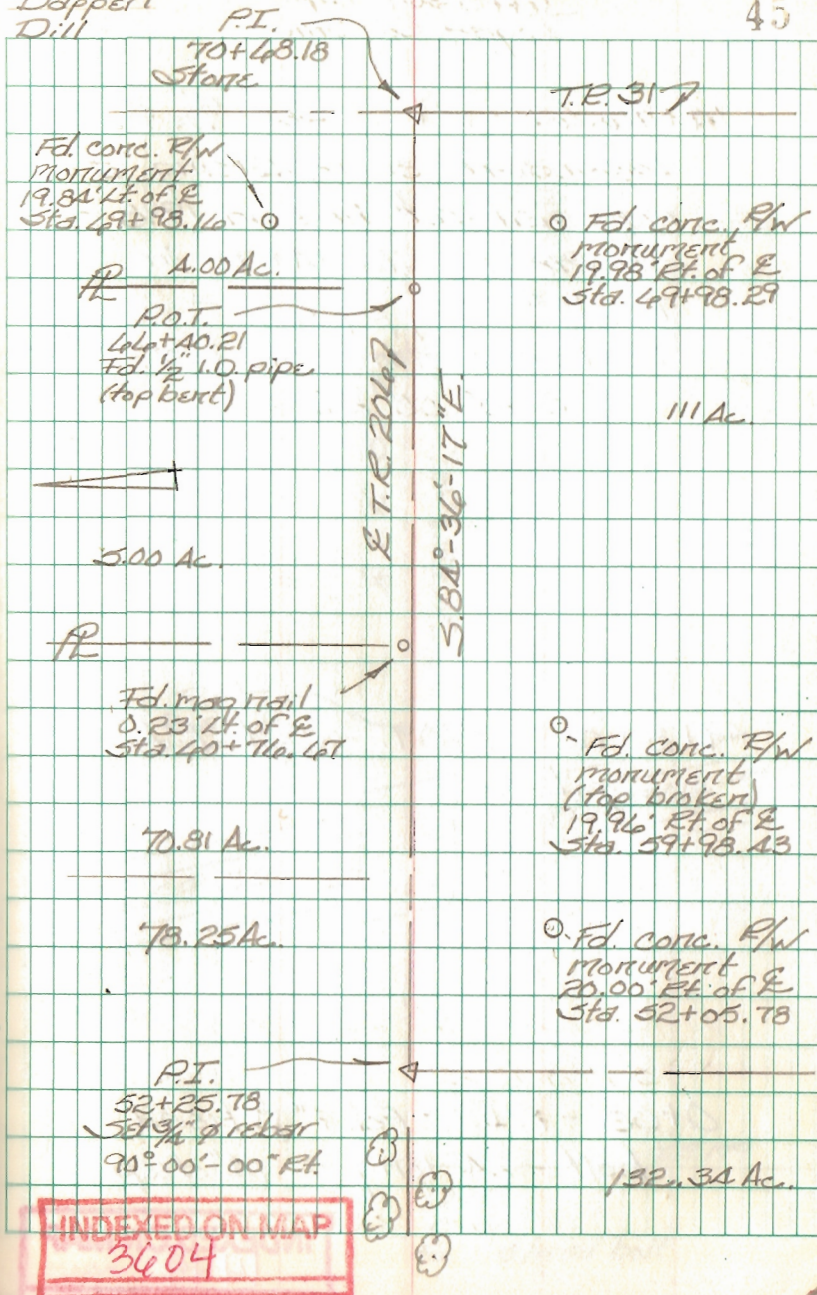 Dappert
Dill
45
P.I.
70+68.18
Stone
T.R. 317
Fd. conc. R/W
monument
19.84' Lt. of ℄
Sta. 69+98.16
Fd. conc. R/W
monument
19.98' Rt. of ℄
Sta. 69+98.29
℄ 4.00 Ac.
P.O.T.
66+40.21
Fd. 1/2" I.D. pipe
(top bent)
℄ T.R. 2067
S.84°-36'-17"E.
111 Ac.
5.00 Ac.
℄
Fd. mag nail
0.23' Lt. of ℄
Sta. 60+76.67
Fd. conc. R/W
monument
(top broken)
19.96' Rt. of ℄
Sta. 59+98.43
70.81 Ac.
78.25 Ac.
Fd. conc. R/W
monument
20.00' Rt. of ℄
Sta. 52+05.78
P.I.
52+25.78
Set 3/4" ø rebar
90°-00'-00" Rt.
132.34 Ac.
INDEXED ON MAP
3604